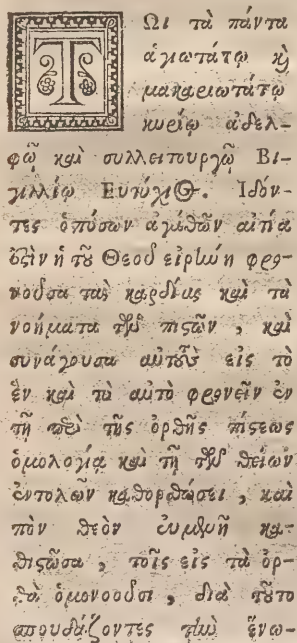 Τῼ τὰ πάντα
ἁγιωτάτῳ καὶ
μακαριωτάτῳ
κυρίῳ ἀδελ-
φῷ καὶ συλλειτουργῷ Βι-
γιλλίῳ Εὐτύχιος. Ἰδόν-
τες ὁπόσων ἀγαθῶν αἰτία
ἐστὶν ἡ τοῦ Θεοῦ εἰρήνη φρου-
ροῦσα τὰς καρδίας καὶ τὰ
νοήματα τῶν πιστῶν, καὶ
συνάγουσα αὐτοὺς εἰς τὸ
ἓν καὶ τὸ αὐτὸ φρονεῖν ἐν
τῇ περὶ τῆς ὀρθῆς πίστεως
ὁμολογίᾳ καὶ τῇ τῶν θείων
ἐντολῶν κατορθώσει, καὶ
τὸν θεὸν εὐμενῆ κα-
θιστῶσα, τοῖς εἰς τὰ ὀρ-
θὰ ὁμονοοῦσι, διὰ τοῦτο
σπουδάζοντες τὴν ἕνω-